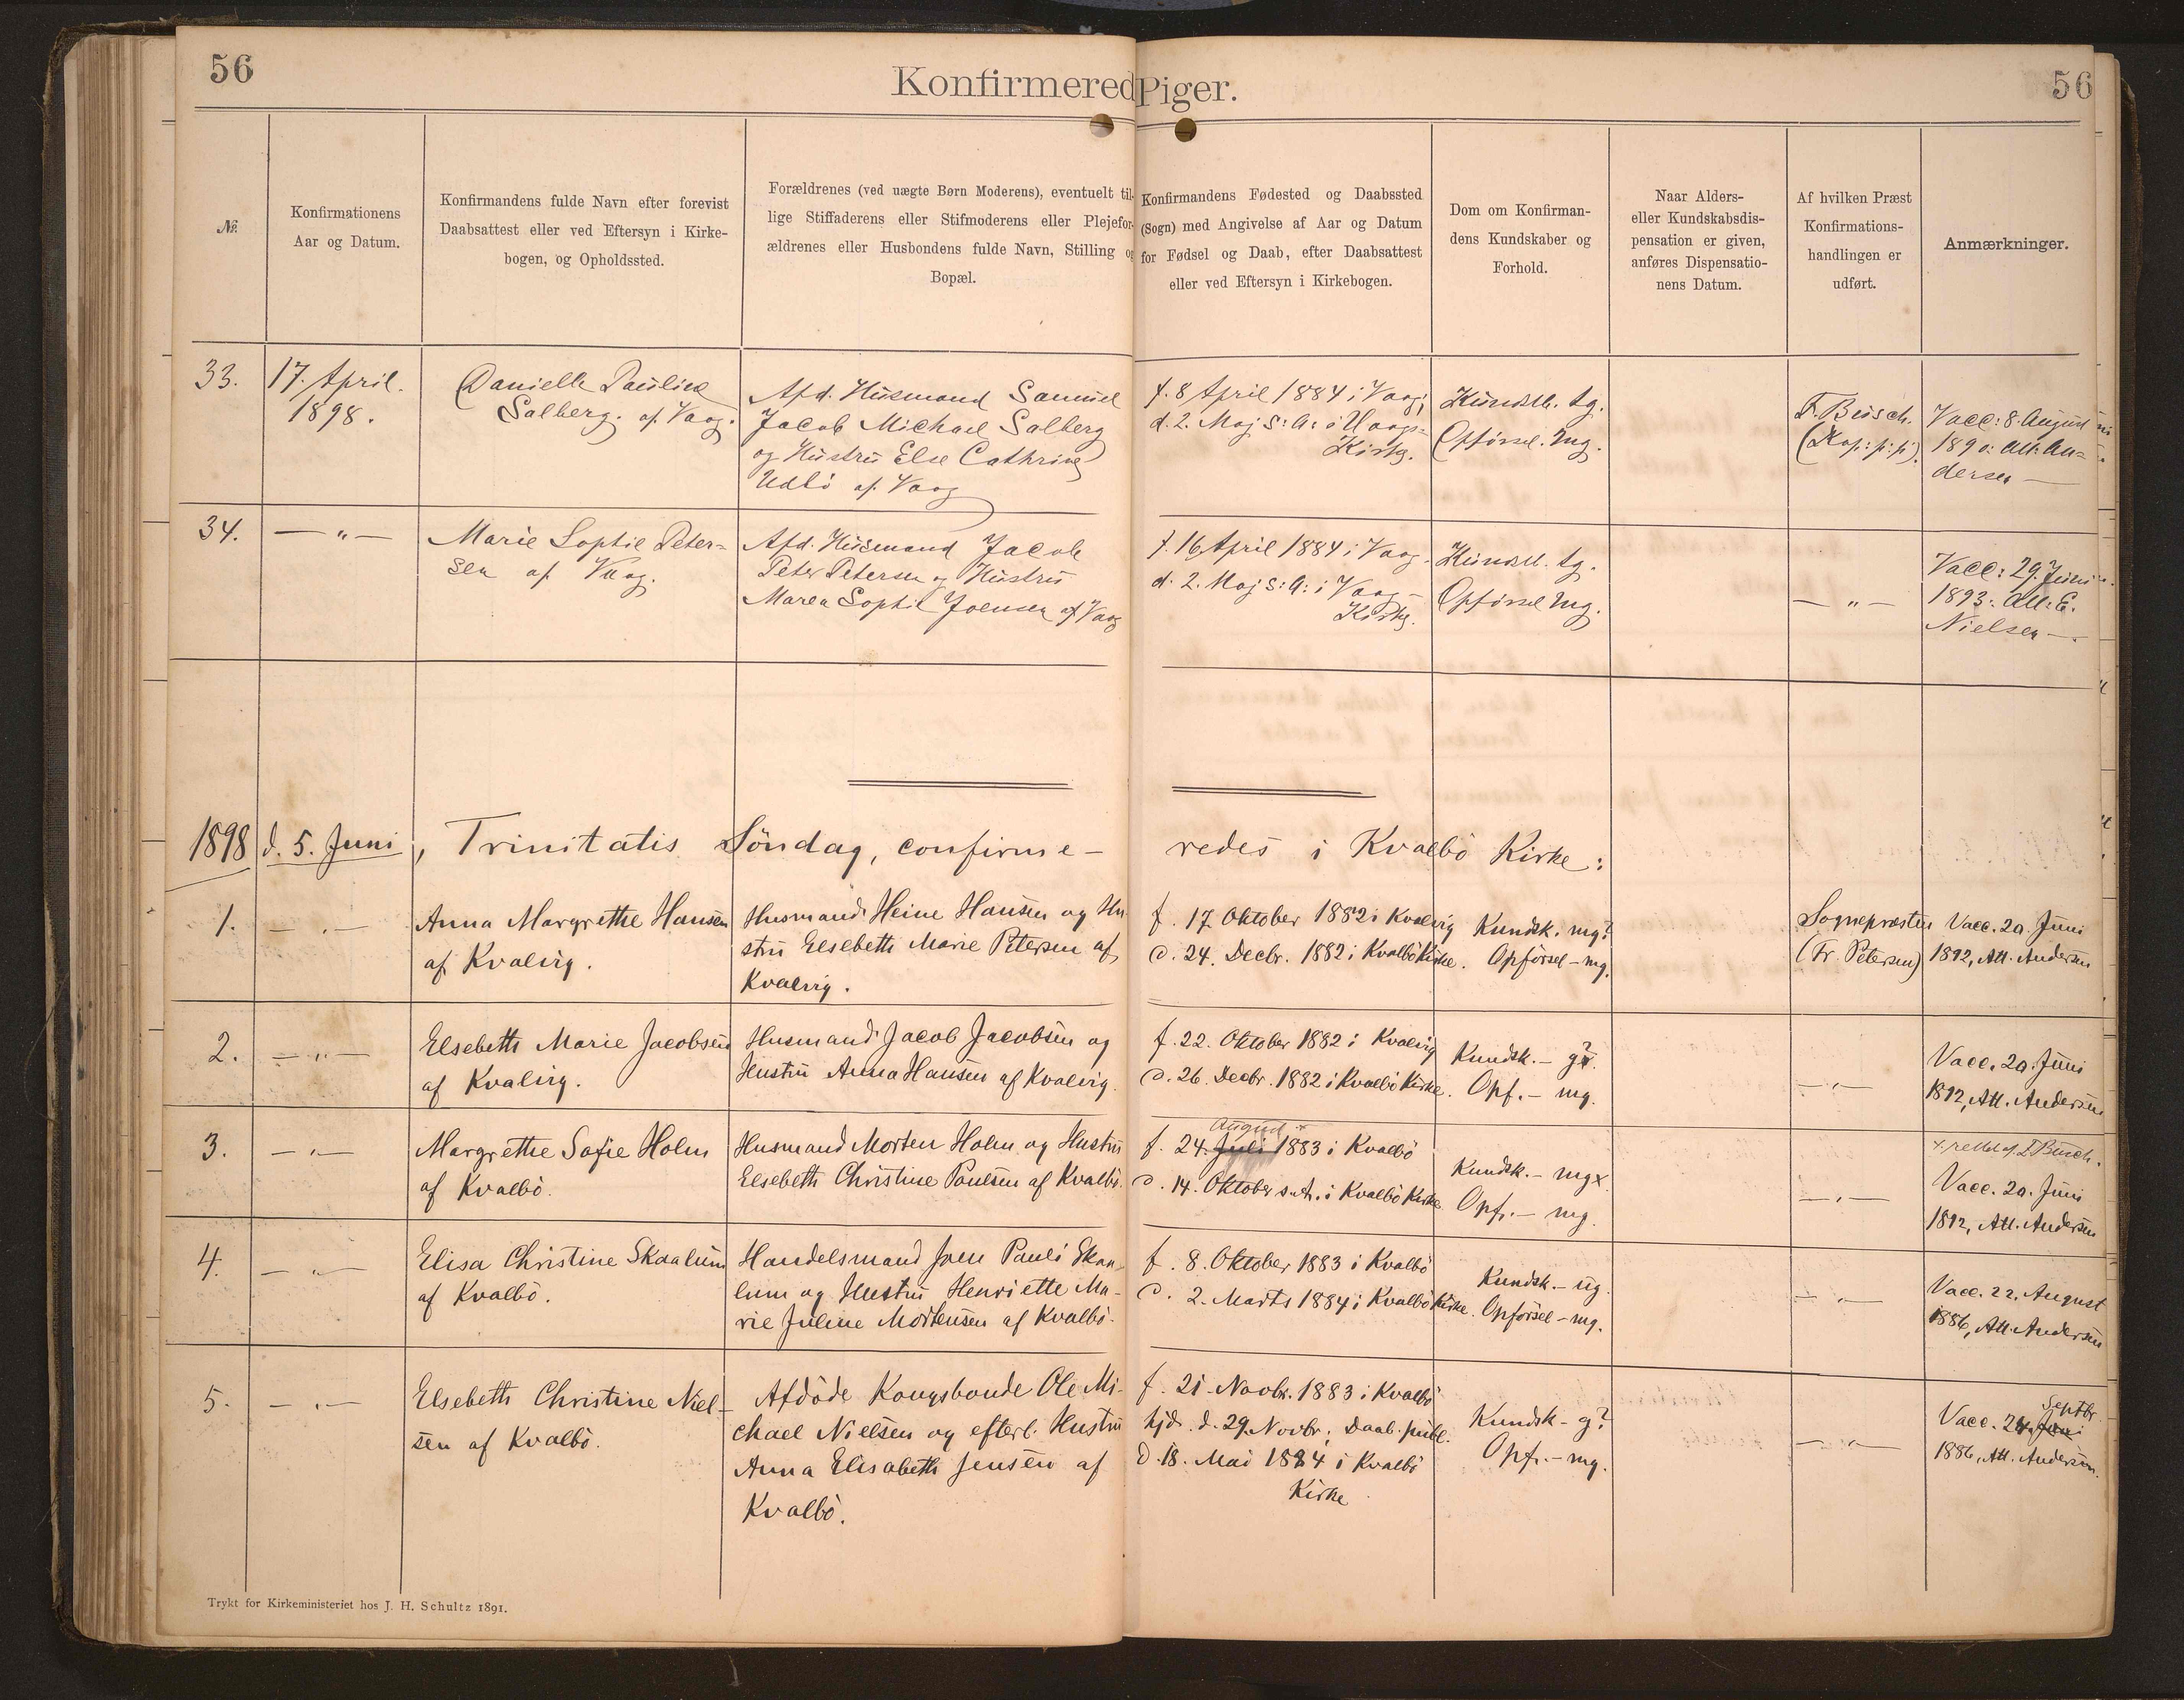 56
Konfirmered Piger.
56
№.
Konfirmationens
Aar og Datum.
Konfirmandens fulde Navn efter forevist
Daabsattest eller ved Eftersyn i Kirke-
bogen, og Opholdssted.
Forældrenes (ved uægte Børn Moderens), eventuelt til-
lige Stiffaderens eller Stifmoderens eller Plejefor-
ældrenes eller Husbondens fulde Navn, Stilling og
Bopæl.
Konfirmandens Fødested og Daabssted
(Sogn) med Angivelse af Aar og Datum
for Fødsel og Daab, efter Daabsattest
eller ved Eftersyn i Kirkebogen.
Dom om Konfirman-
dens Kundskaber og
Forhold.
Naar Alders-
eller Kundskabsdis-
pensation er given,
anføres Dispensatio-
nens Datum.
Af hvilken Præst
Konfirmations-
handlingen er
udført.
Anmærkninger.
33.
17. April.
1898.
Danielle Pauline
Salberg. af Vaag.
Afd. Husmand Samuel
Jacob Michael Salberg
og Hustru Else Cathrine
af Vaag
f. 8 April 1884 i Vaag,
d. 2. Maj s: A: i Vaags-
Kirke.
Kundsk. tg.
Opførsel. mg.
F. Busch.
(Kap: p: p:)
Vacc: 8. August
1890: Att: An-
dersen —
34.
— " —
Marie Sophie Peter-
sen af Vaag.
Afd. Husmand Jacob
Peter Petersen og Hustru
Maren Sophie Joensen af Vaag
f. 16 April 1884 i Vaag.
d. 2. Maj s: A: i Vaag-
Kirke.
Kundsk. tg.
Opførsel mg.
— " —
Vacc: 29. Juni
1893: Att: E.
Nielsen —.
1898 d. 5. Juni, Trinitatis Söndag, confirme- redes i Kvalbö Kirke:
1.
— " —
Anna Margrethe Hansen
af Kvalvig.
Husmand Heine Hansen og Hu-
stru Elsebeth Marie Petersen af
Kvalvig.
f. 17 Oktober 1882 i Kvalvig
d. 24. Decbr. 1882 i Kvalbö Kirke.
Kundsk. mg?
Opförsel - mg.
Sognepræsten
(Fr. Petersen)
Vacc. 20. Juni
1892, Att. Andersen
2.
— " —
Elsebeth Marie Jacobsen
af Kvalvig.
Husmand Jacob Jacobsen og
Hustru Anna Hansen af Kvalvig.
f. 22. Oktober 1882 i Kvalvig
d. 26. Decbr. 1882 i Kvalbö Kirke.
Kundsk. - g?
Opf. - mg.
— " —
Vacc. 20. Juni
1892, Att. Andersen
3.
— " —
Margrethe Sofie Holm
af Kvalbö.
Husmand Morten Holm og Hustru
Elsebeth Christine Poulsen af Kvalbö.
August ×
f. 24. Juli 1883 i Kvalbö
d. 14. Oktober s. A. i Kvalbö Kirke
Kundsk. - mg×
Opf. - mg.
— " —
×. rettet af F. Busch.
Vacc. 20. Juni
1892, Att. Andersen
4.
— " —
Elisa Christine Skaalum
af Kvalbö.
Handelsmand Joen Pauli Skaa-
lum og Hustru Henriette Ma-
rie Juline Mortensen af Kvalbö.
f. 8. Oktober 1883 i Kvalbö
d. 2. Marts 1884 i Kvalbö Kirke.
Kundsk. - ug.
Opförsel - mg.
— " —
Vacc. 22. August
1886, Att. Andersen
5.
— " —
Elsebeth Christine Niel-
sen af Kvalbö.
Afdöde Kongsbonde Ole Mi-
chael Nielsen og efterl. Hustru
Anna Elisabeth Jensen af
Kvalbö.
f. 21. Novbr. 1883 i Kvalbö
hjd. d. 29. Novbr; Daab. publ.
d. 18. Mai 1884 i Kvalbö
Kirke
Kundsk - g?
Opf. - mg.
— " —
Septbr.
Vacc. 24. Juni
1886, Att. Andersen.
Trykt for Kirkeministeriet hos J. H. Schultz 1891.